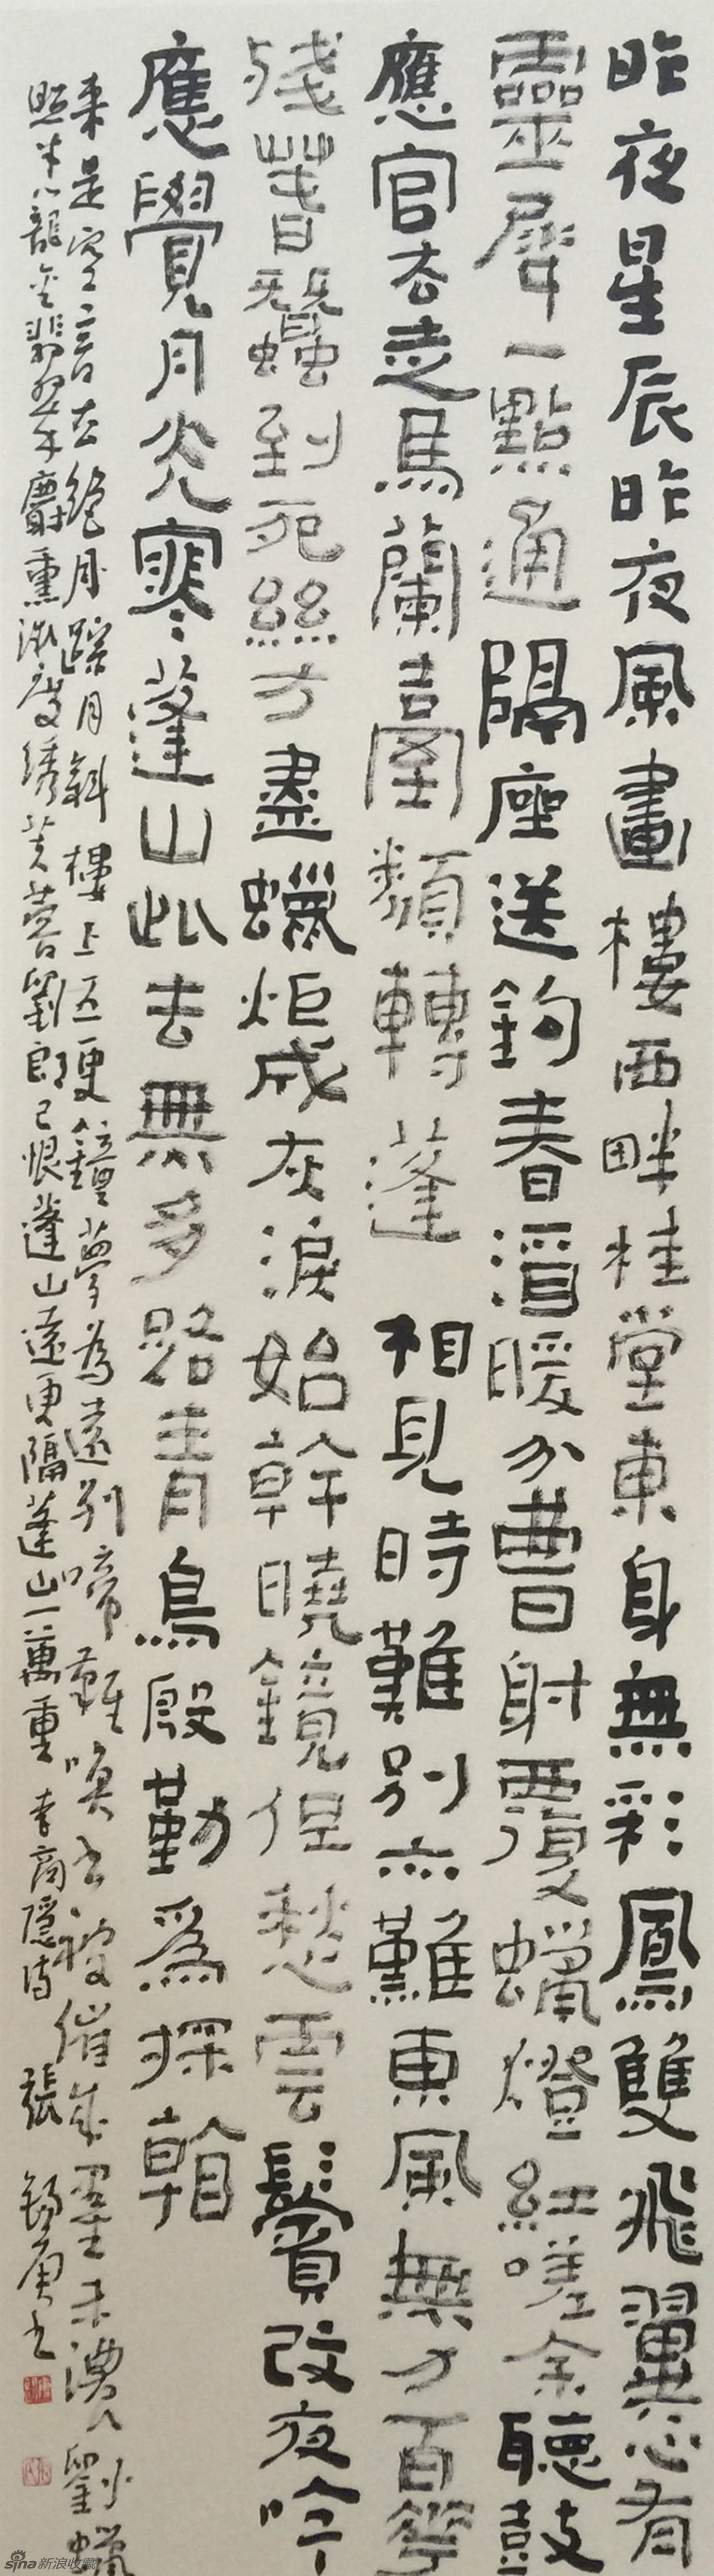 昨夜星辰昨夜風畫樓西畔桂堂東身無彩鳳雙飛翼心有
靈犀一點通隔座送鉤春酒暖分曹射覆蠟燈紅嗟余聽鼓
應官去走馬蘭臺類轉蓬 相見時難別亦難東風無力百花
殘春蠶到死絲方盡蠟炬成灰淚始幹曉鏡但愁雲鬢改夜吟
應覺月光寒蓬山此去無多路青鳥殷勤為探看
來是空言去絕踪月斜樓上五更鐘夢為遠別啼難喚書被催成墨未濃劉蠟
照半籠金翡翠麝熏微度繡芙蓉劉郎已恨蓬山遠更隔蓬山一萬重 李商隱詩 張錫庚書
sina新浪收藏